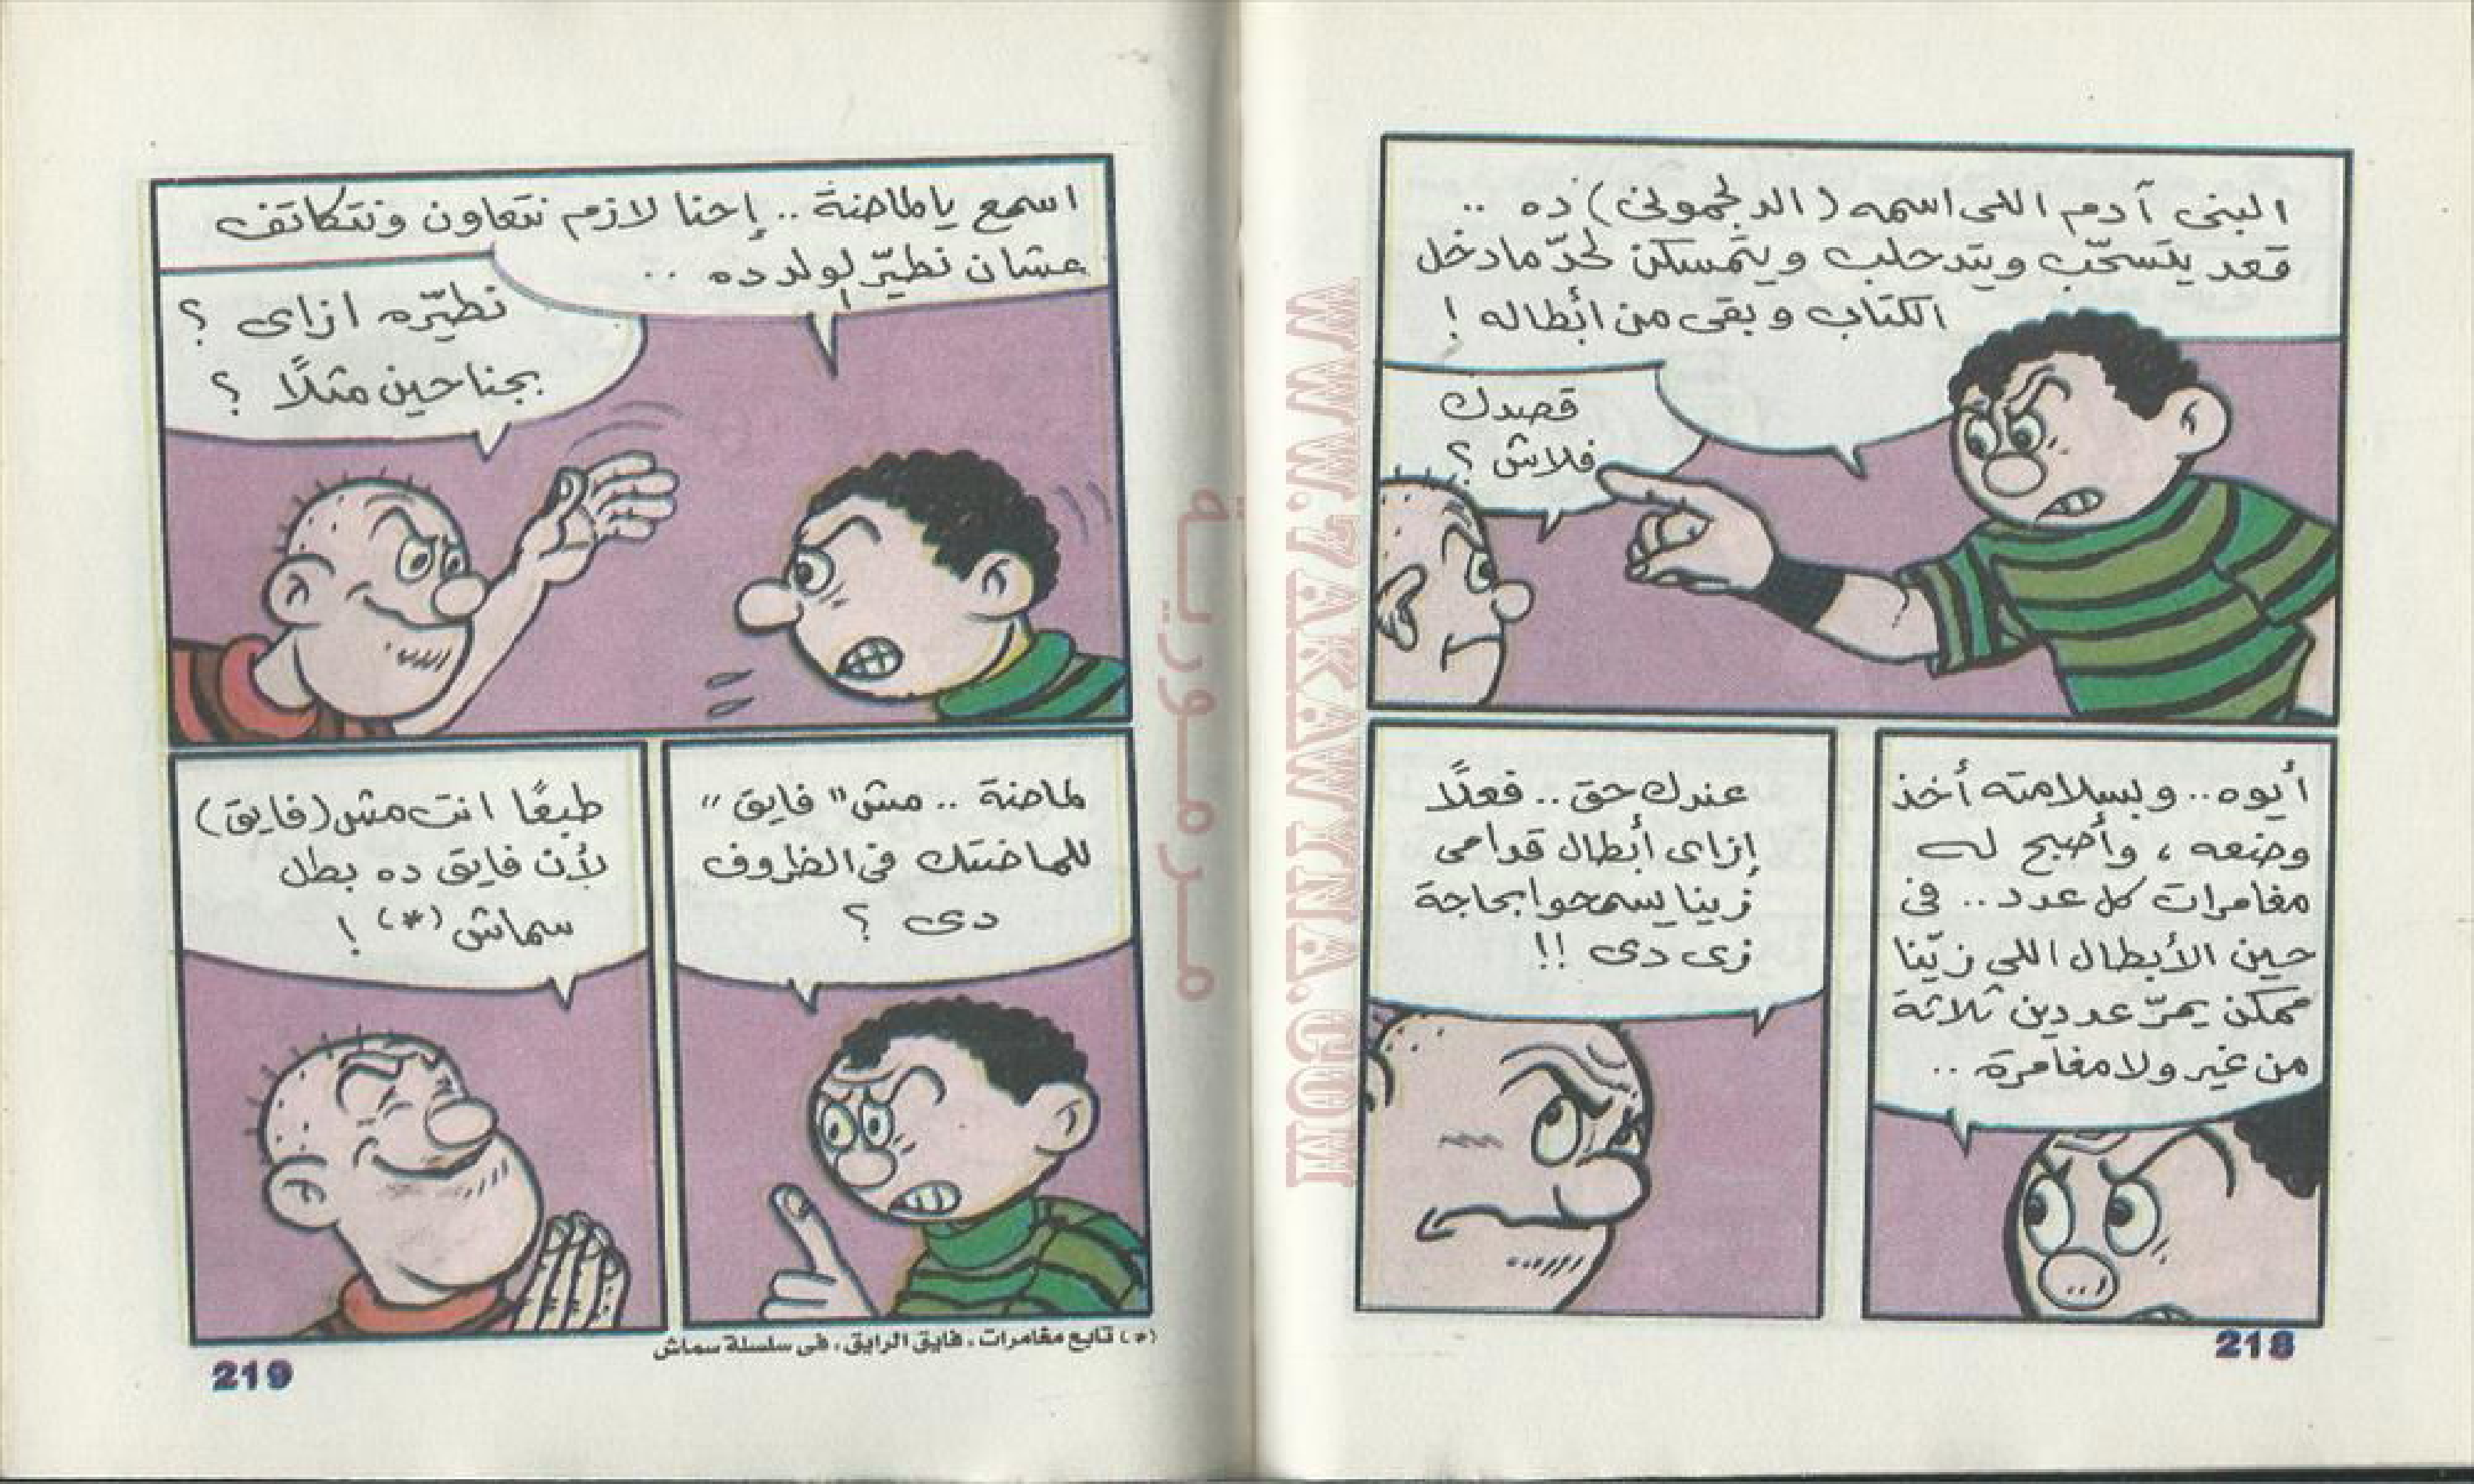 البنى آدم اللى اسمه (الدلجمونى) ده ..
قعد يتسحّب ويتدحلب ويتمسكن لحدّ ما دخل
الكتاب وبقى من أبطاله !
قصدك
فلاش ؟
أيوه.. وبسلامته أخذ
وضعه ، وأصبح له
مغامرات كل عدد .. فى
حين الأبطال اللي زيّنا
ممكن يمرّ عددين ثلاثة
من غير ولا مغامرة ..
عندك حق .. فعلًا
إزاى أبطال قدامى
زينا يسمحوا بحاجة
زى دى !!
218
اسمع ياماضنة .. إحنا لازم نتعاون ونتكاتف
عشان نطيّر لولد ده ..
نطيّره ازاى ؟
بجناحين مثلًا ؟
لماضنة .. مش "فايق"
للماضتك فى الظروف
دى ؟
طبعًا انت مش (فايق)
لأن فايق ده بطل
سماش (*) !
(*) تابع مغامرات، فايق الرايق، فى سلسلة سماش
219
مرمورية